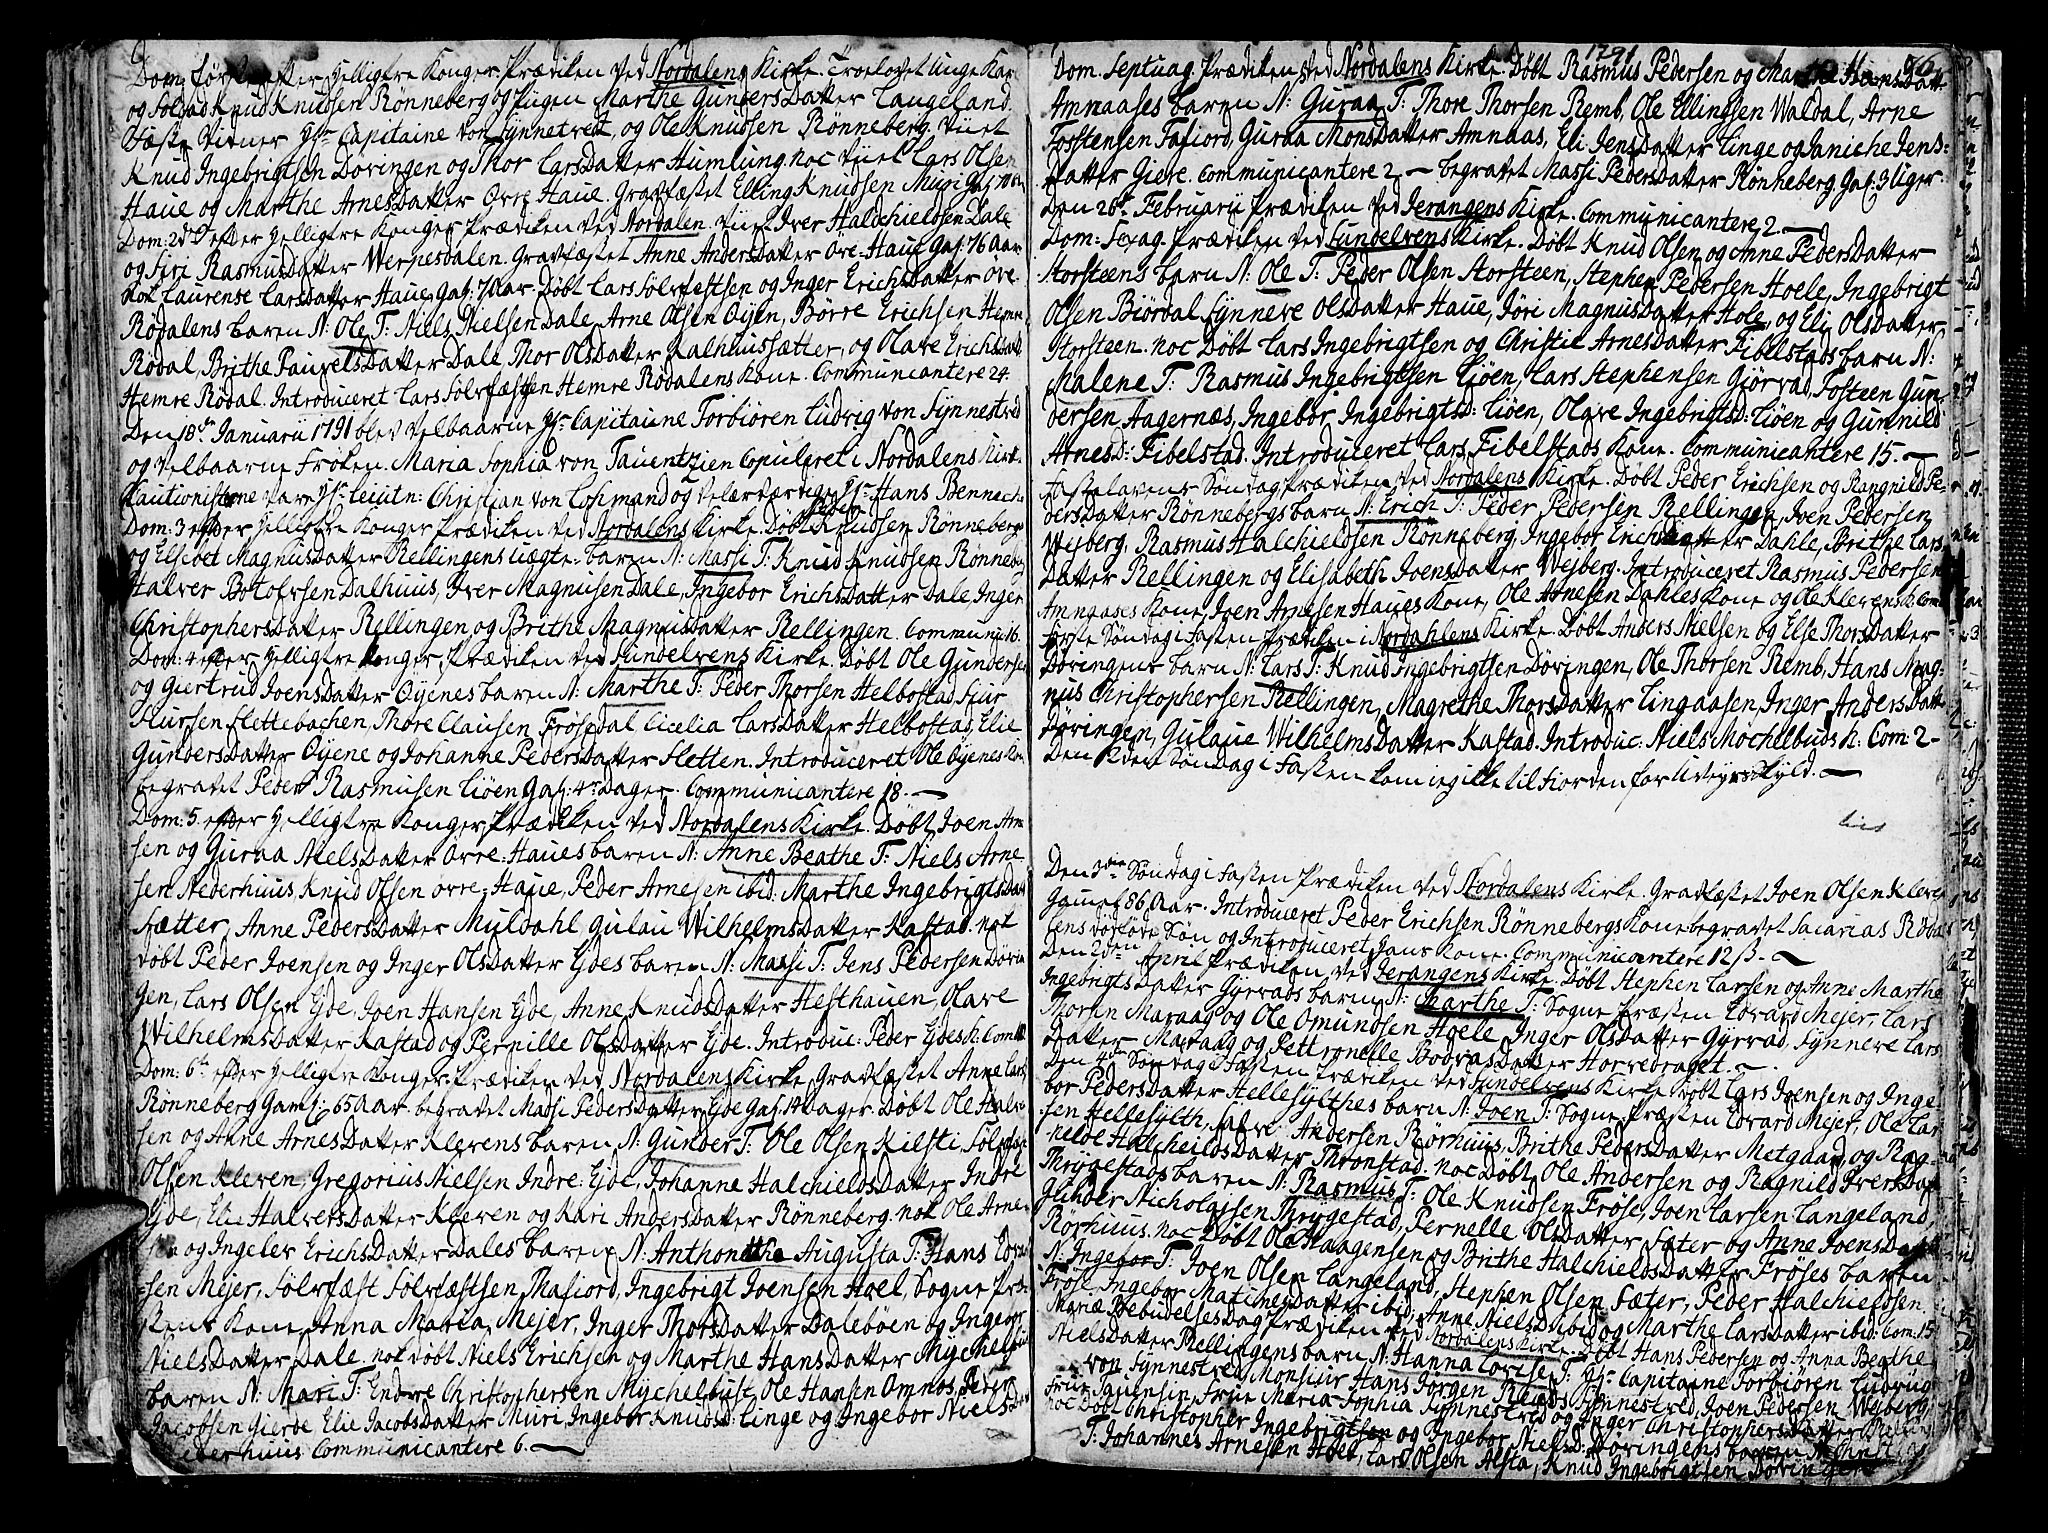 Dom: Første efter Helligtre Konger Prædiken ved Nordalens Kirke. Troelovet unge Karl
og Soldad Knud Knudsen Rønneberg og Pigen Marthe GundersDatter Langeland.
Fæste Vidner Hr. Capitaine von Synnestved, og Ole Knudsen Rønneberg. Viiet
Knud Ingebrigtsen Døvingen og Thor LarsDatter Humlung. noc Viiet Lars Olsen
Haue og Marthe ArnesDatter Ovre Haue. Gravfæstet Elling Knudsen Muri Gal: 70
Dom: 2den efter Helligtre Konger Prædiken ved Nordalen. Viiet Iver Halchieldsen Dale
og Siri RasmusDatter Wernesdalen. Gravfæstet Anne AndersDatter Ove-Haue Gal: 76 Aar
nok Laurense LarsDatter Haue, Gal: 70 Aar. Døbt Lars Sølvfestsen og Inger ErichsDatter øve
Rødalens barn N: Ole T: Niels Nielsen Dale, Arne Olsen Øijen, Børre Erichsen Hemre
Rødal, Brithe PauvelsDatter Dale, Thor OlsDatter Dalhuussætter, og Olave Erichsdatt
Hemre Rødal. Introduceret Lars Sølvfæstsen Hemre Rødalens Kone. Communicantere 24.
Den 18de Januarii 1791 blev Velbaarne Hr. Capitaine Torbiören Ludvig von Synnestved
og Velbaarne Frøken Maria Sophia von Tauentzien Copuleret i Nordalens Kirk.
Cautionistene vare Hr. Leiutn: Christian von Lohmand og Velærværdige Hr. Hans Bennech
Dom: 3 efter Helligtre Konger Prædiken ved Nordalens Kirke. Døbt Peder Knudsen Rønnebergs
og Elsebet MagnusDatter Rellingens uægte-barn N: Massi T: Knud Knudsen Rønneberg
Halver Botolvsen Dalhuus, Iver Magnusen Dale, Ingebor ErichsDatter Dale, Inger
ChristophersDatter Rellingen og Brithe MagnusDatter Rellingen. Communi: 16.
Dom: 4 efter Helligtre Konger Prædiken ved Sundelvens Kirke. Døbt Ole Gundersen
og Giertrud JoensDatter Øyenes barn N: Marthe T: Peder Thorsen Helbostad, Siur
Siursen Slettebachen, Thore Clausen Frøsedal, Cicelia LarsDatter Helbostad, Elie
GundersDatter Øyene og Johanne PedersDatter Sletten. Introduceret Ole Øyenes Ko
begravet Peder Rasmusen Liøen Gal: 4 Dager. Communicantere 18.
Dom: 5 efter Helligtre Konger Prædiken ved Nordalens Kirke. Døbt Joen Arne
sen og Guraa NielsDatter Ovre-Haues barn N: Anne Beathe T: Niels Arne
sen Nederhuus, Knud Olsen øvre-Haue, Peder Arnesen ibid: Marthe IngebrigtsDatt
Sætter, Anne PedersDatter Muldahl, Gulau WilhelmsDatter Kastad. nok
døbt Peder Joensen og Inger OlsDatter Ejdes barn N: Massi T: Jens Pedersen Døvin
gen, Lars Olsen Ejde, Joen Hansen Ejde, Anne KnudsDatter Hesthauen, Olave
WilhelmsDatter Kastad og Pernille OlsDatter Ejde. Introduc: Peder Ejdes K. Com: 12.
Dom: 6te efter Helligtre Konger Prædiken ved Nordalens Kirke. Gravfæstet Anne Lars
Rønneberg Gaml: 65 Aar. begravet Massi PedersDatter Ejde Gal: 14 Dager. Døbt Ole Halve
sen og Anne ArnesDatter Klevens barn N: Gunder T: Ole Olsen Kilsti, Sølvfæst
Olsen Kleven, Gregorius Nielsen Indre-Ejde, Johanne HalchieldsDatter Indre
Ejde, Elie HalversDatter Kleven og Kari AndersDatter Rønneberg. nok Ole Arne-
sen og Ingeler ErichsDatter Dales barn N: Anthonethe Augusta T: Hans Edvar
sen Mejer, Sølvfæst Sølvfæstsen Thafiord, Ingebrigt Joensen Hoel, Sogne Præ
stens Kone Anna Maria Mejer, Inger ThorsDatter Dalebøen og Ingebor
NielsDatter Dale. nok døbt Niels Erichsen og Marthe HansDatter Mychelbust
barn N: Mari T: Endre Christophersen Mychelbust, Ole Hansen Omnos, Peder
Jacobsen Gierde, Elie JacobsDatter Muri, Ingebor Knudsd: Linge og Ingebor NielsDatt
Nederhuus. Communicantere 6.
1791
Dom. Septuag. Prædiken ved Nordalens Kirke. Døbt Rasmus Pedersen og Marthe HansDatt
Amnaases barn N: Guraa T: Thore Thorsen Remb, Ole Ellingsen Waldal, Arne
Tostensen Tafiord, Guraa MonsDatter Amnaas, Eli JensDatter Linge og Janiche Jens-
Datter Giere. Communicantere 2. begravet Massi PedersDatter Rønneberg Gal: 3 Uger.
Den 20de Februarii Prædiken ved Jerangens Kirke. Communicantere 2.
Dom: Sexag. Prædiken ved Sundelvens Kirke. Døbt Knud Olsen og Anne PedersDatter
Storsteens barn N: Ole T: Peder Olsen Storsteen, Stephen Pedersen Hoele, Ingebrigt
Olsen Biørdal, Synneve OlsDatter Haue, Jøri MagnusDatter Hole, og Eli OlsDatter
Storsteen. noc Døbt Lars Ingebrigtsen og Christie ArnesDatter Fibelstads barn N:
Malene T: Rasmus Ingebrigtsen Liøen, Lars Stephensen Giørvad, Josteen Gun
dersen Aagernæs, Ingebor Ingebrigtsd: Liøen, Olave Ingebrigtsd: Liøen og Gunnild
ArnesD: Fibelstad. Introduceret Lars Fibelstads Kone. Communicantere 15.
Fastelavens Søndag Prædiken ved Nordalens Kirke. Døbt Peder Erichsen og Rangnild Pe-
dersDatter Rønnebergs barn N: Erich T: Peder Pedersen Rellingen, Joen Pedersen
Wejberg, Rasmus Halchieldsen Rønneberg, Ingebor ErichsDatter Dahle, Brithe Lars
Datter Rellingen og Elisabeth JoensDatter Wejberg. Introduceret Rasmus Pedersen
Amnaases Kone, Joen Arnesen Haues Kone, Ole Arnesen Dahles Kone og Ole Klevens K. Com:
Første Søndag i Fasten Prædiken i Nordahlens Kirke. Døbt Anders Nielsen og Else ThorsDatter
Døvingens barn N: Lars T: Knud Ingebrigtsen Døvingen, Ole Thorsen Remb, Hans Mag-
nus Christophersen Rellingen, Magrethe ThorsDatter Lingaasen, Inger AndersDatt
Døvingen, Gulaue WilhelmsDatter Kastad. Introduc: Niels Mochelbuds K: Com: 2-
Den 2den Søndag i Fasten kom ieg ikke til Fiorden for Uveyrs skyld.
Den 3die Søndag i Fasten Prædiken ved Nordalens Kirke. Gravfæstet Joen Olsen Kleve
Gamel 86 Aar. Introduceret Peder Erichsen Rønnebergs Kone begravet Sacarias Røda
lens dødføde Søn og Introduceret hans Kone. Communicantere 12
Den 2den April Prædiken ved Jerangens Kirke. Døbt Stephen Larsen og Anne Marthe
IngebrigtsDatter Gyrvads barn N: Marthe T: Sogne Præsten Edvard Mejer, Lars
Thorsen Maraag og Ole Omundsen Hoele, Inger OlsDatter Gyrvad, Synneve Lars
Datter Maraag og Pettronelle BodvasDatter Horvedraget.
Den 4de Søndag i Fasten Prædiken ved Sundelvens Kirke døbt Lars Joensen og Inge-
bor PedersDatter Hellesylthes barn N: Joen T: Sogne Præsten Edvard Mejer, Ole Lar
sen Hellesylth, Salve Andersen Rørhuus, Brithe PedersDatter Metgaar, og Rag-
nilde HalcheildsDatter Thronstad. noc Døbt Ole Andersen og Ragnild IversDatt
Thrygestads barn N: Rasmus T: Ole Knudsen Frøse, Joen Larsen Langeland,
Gunder Nicholajsen Thrygestad, Pernelle OlsDatter Sæter og Anne JoensDatt
Rørhuus. noc Døbt Ole Haagensen og Brithe HalchieldsDatter Frøses barn
N: Ingebor T: Joen Olsen Langeland, Stephen Olsen Sæter, Peder Halchieldsen
Frøse, Ingebor MatinesDatter ibid, Anne NielsD: ibid og Marthe LarsDatter ibid. Com: 15
Mariæ Bebudelses Dag Prædiken ved Nordalens Kirke. Døbt Hans Pedersen og Anna Beathe
NielsDatter Rellingens barn N: Hanna Lovise T: Hr. Capitaine Torbiören Ludvig
von Synnestved, Monsiur Hans Jørgen Synnestved, Joen Pedersen Wejberg,
Frue Tauensin, Frue Maria Sophia Synnestved og Inger ChristophersDatter Relling
noc Døbt Christopher Ingebrigtsen og Ingebor NielsD: Døvingens barn N:
T: Johannes Arnesen Hoel, Lars Olsen Alsta, Knud Ingebrigtsen Døvingen